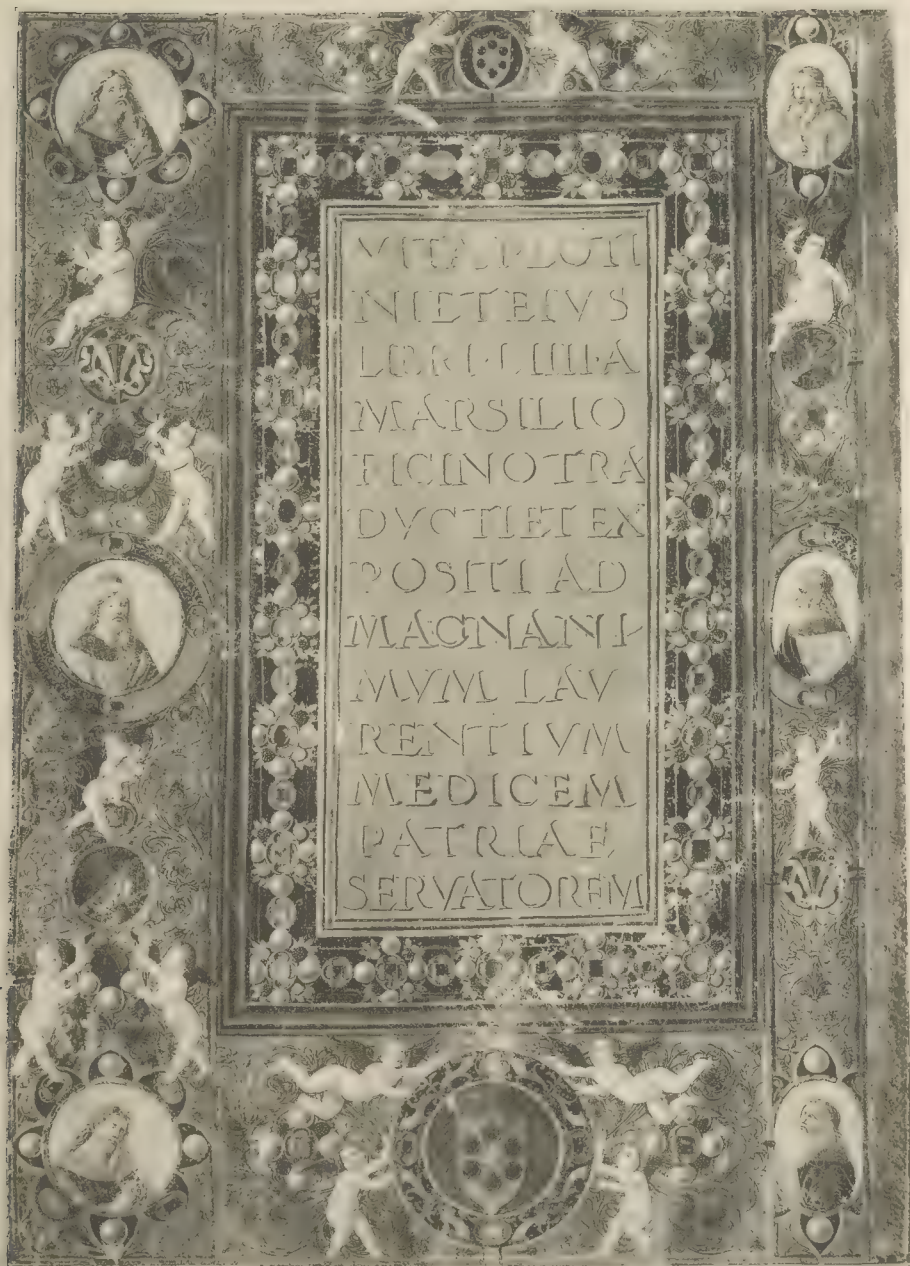 VITA PLOTI
NI ET EIVS
LIBRI·LIIII·A
MARSILIO
FICINO TRA
DVCTI ET EX
POSITI AD
MAGNANI
MVM LAV
RENTIVM
MEDICEM
PATRIAE
SERVATOREM